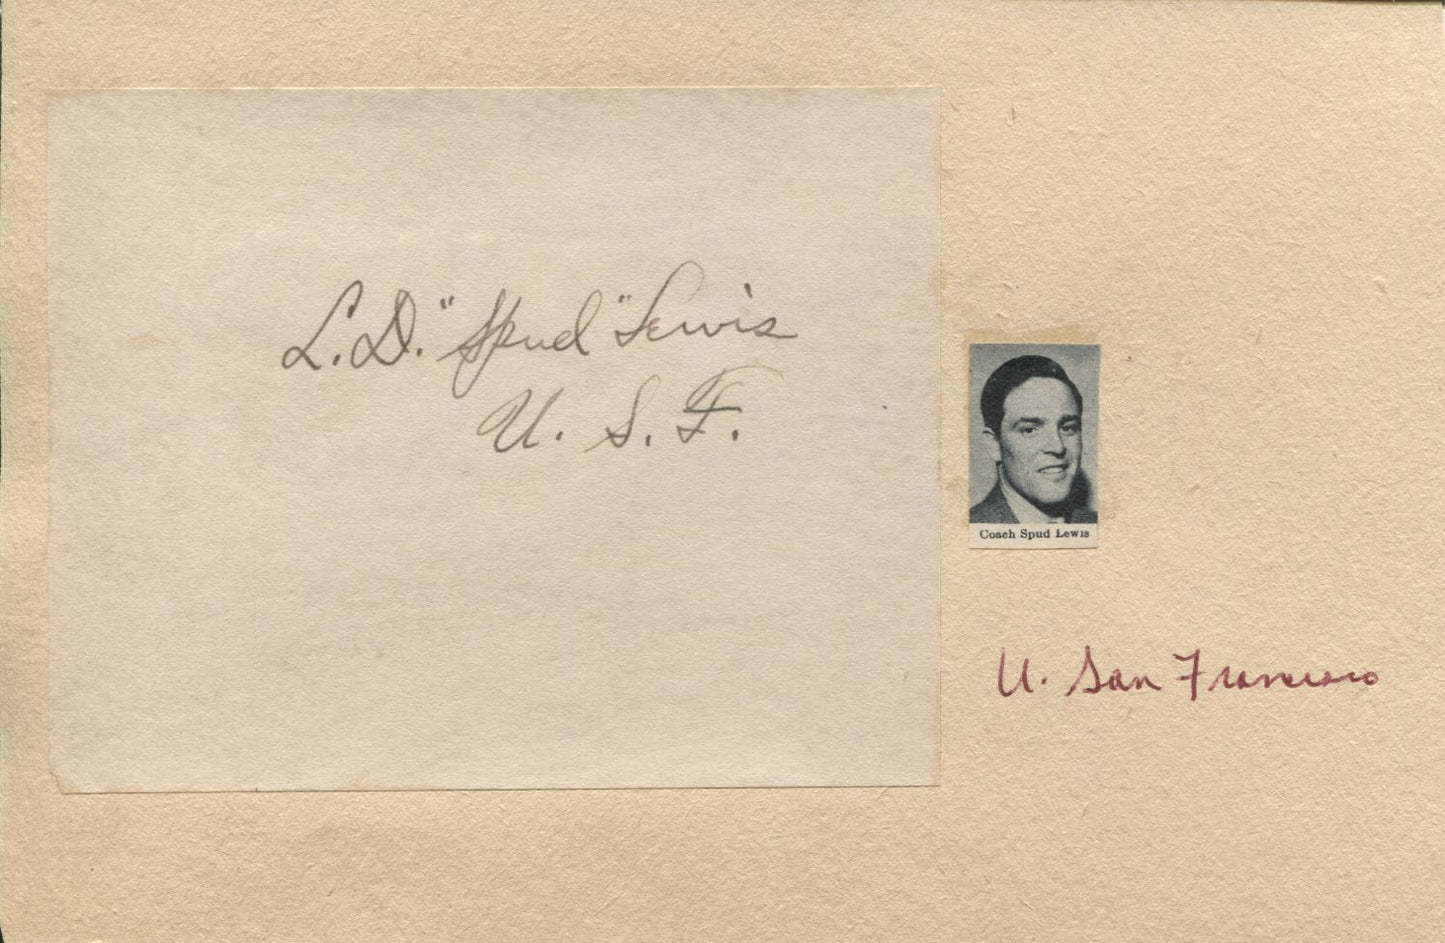 L. D. "Spud" Lewis
U. S. F.
Coach Spud Lewis
U. San Francisco